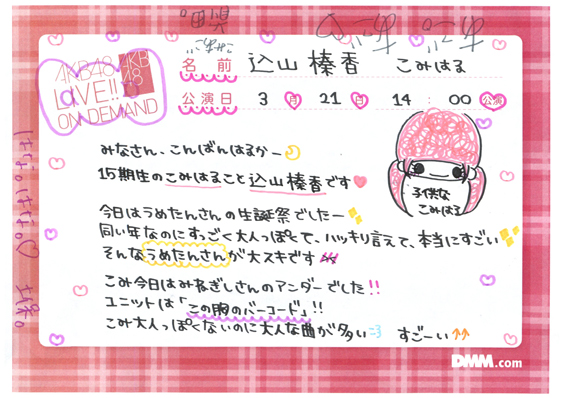 AKB48
LIVE!!
ON DEMAND
AKB
48
名前 込山榛香 こみはる
公演日 3月 21日 14:00公演
みなさん、こんばんはるかー
15期生のこみはること込山榛香です
今日はうめたんさんの生誕祭でしたー
同い年なのにすっごく大人っぽくて、ハッキリ言えて、本当にすごい
そんなうめたんさんが大スキです
こみ今日はみねぎしさんのアンダーでした!!
ユニットは「この胸のバーコード」!!
こみ大人っぽくないのに大人な曲が多い すごーい↑↑
子供な
こみはる
DMM.com